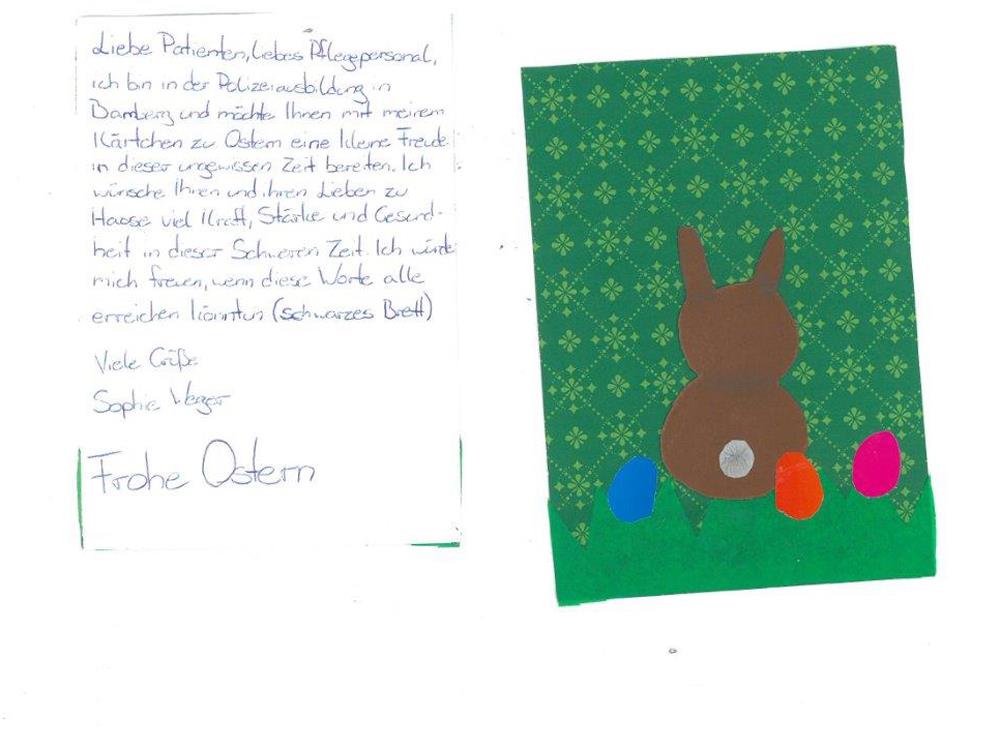 Liebe Patienten, liebes Pflegepersonal,
ich bin in der Polizeiausbildung in
Bamberg und möchte Ihnen mit meinem
Kärtchen zu Ostern eine kleine Freude
in dieser ungewissen Zeit bereiten. Ich
wünsche Ihnen und ihren Lieben zu
Hause viel Kraft, Stärke und Gesund-
heit in dieser Schweren Zeit. Ich würde
mich freuen, wenn diese Worte alle
erreichen könnten (schwarzes Brett)
Viele Grüße
Sophie
Frohe Ostern